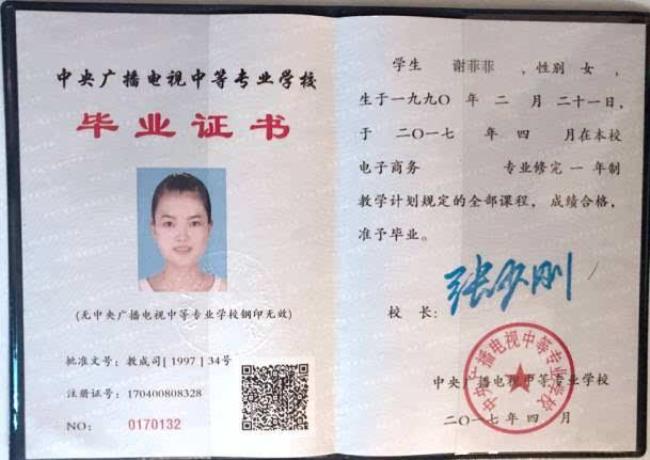 中央广播电视中等专业学校
毕业证书
(无中央广播电视中等专业学校钢印无效)
批准文号: 教成司[1997]34号
注册证号: 170400808328
NO: 0170132
学生 谢菲菲 ,性别 女 ,
生于一九九〇 年 二 月 二十一日,
于 二〇一七 年 四 月在本校
电子商务 专业修完 一 年制
教学计划规定的全部课程, 成绩合格,
准予毕业。
校 长: 张少刚
中央广播电视中等专业学校
中央广播电视中等专业学校
二〇一七 年 四 月